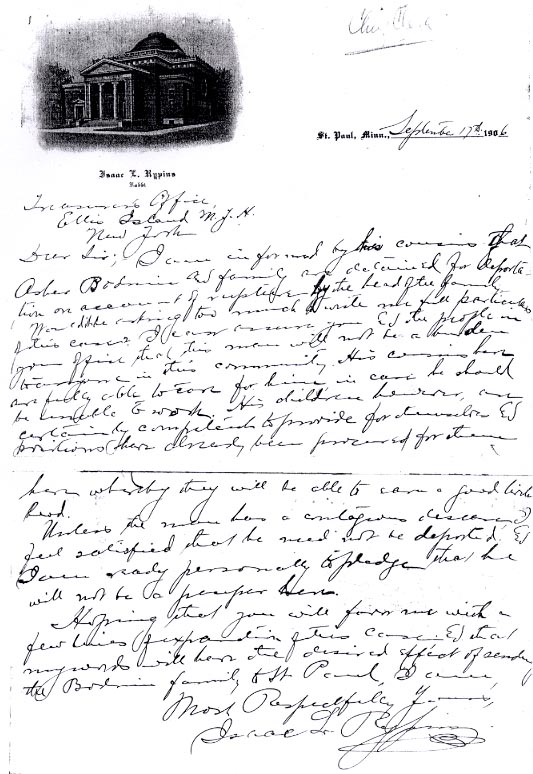 St. Paul, Minn., September 17th 1906
Isaac L. Rypins
Rabbi
Treasurers Office,
Ellis Island N.Y.H.
New York
Dear Sir; I am informed by his cousins that
Asher Bodnia & family are detained for deporta-
tion on account of rupture by the head of the family.
Would it be asking too much to write me full particulars
of this case? I can assure you & the people in
your office that this man will not be a burden
to anyone in this community. His cousins here
are fully able to care for him, in case he should
be unable to work. His children however, are
certainly competent to provide for themselves &
positions have already been procured for them
here whereby they will be able to earn a good liveli-
hood.
Unless the man has a contagious disease I
feel satisfied that he need not be deported &
I am ready personally to pledge that he
will not be a pauper here.
Hoping that you will favor me with a
few lines of this case & that
my words will have the desired effect of sending
the family to St. Paul, I am,
Most Respectfully Yours,
Isaac L. Rypins